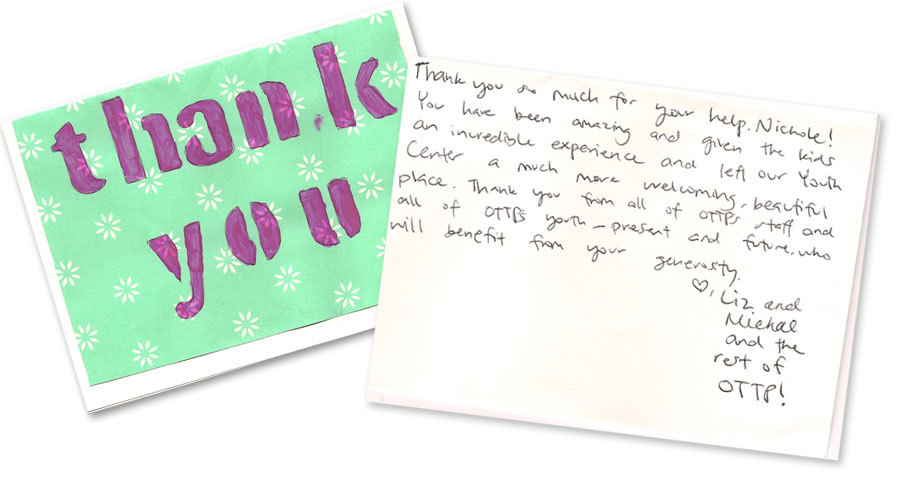 thank
you
Thank you so much for your help, Nichole!
You have been amazing and given the kids
an incredible experience and left our Youth
Center a much more welcoming, beautiful
place. Thank you from all of OTTP's staff and
all of OTTP's youth - present and future, who
will benefit from your generosity.
♡, Liz and
Michal
and the
rest of
OTTP!